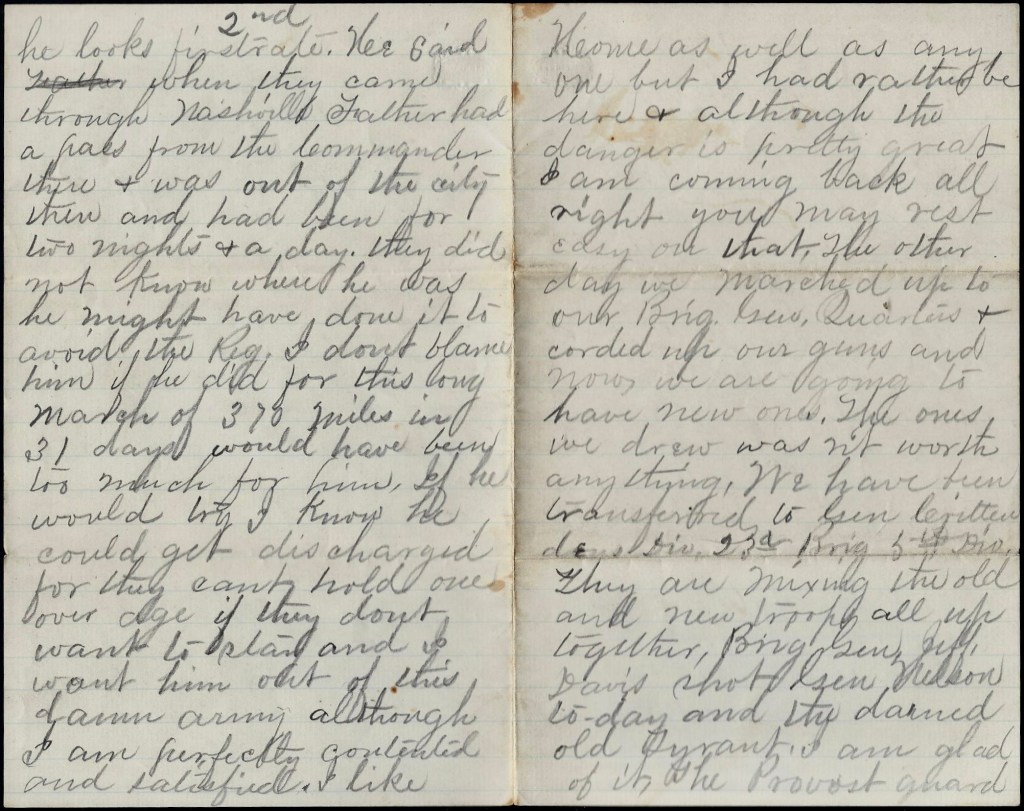 2nd
he looks firstrate. Hee said
Father when they came
through Nashvill Father had
a pass from the Commander
there & was out of the city
then and had been for
two nights & a day. they did
not know where he was
he might have done it to
avoid the Reg. I dont blame
him if he did for this long
march of 370 miles in
31 days would have been
too much for him, If he
would try I know he
could get discharged
for they cant hold one
over age if they dont
want to stay and I
want him out of this
damn army although
I am perfectly contented
and satisfied. I like
Home as well as any
one but I had rather be
here & although the
danger is pretty great
I am coming back all
right you may rest
easy on that, The other
day we marched up to
our Brig. Gen, Quarters &
corded up our guns and
now, we are going to
have new ones, The ones
we drew was n't worth
any thing, We have been
transferred to Gen Critten
dens Div, 23d Brig 5th Div,
They are mixing the old
and new troops all up
together, Brig, Gen, Jeff,
Davis shot Gen Nelson
to-day and the darned
old Tyrant. I am glad
of it, The Provost guard